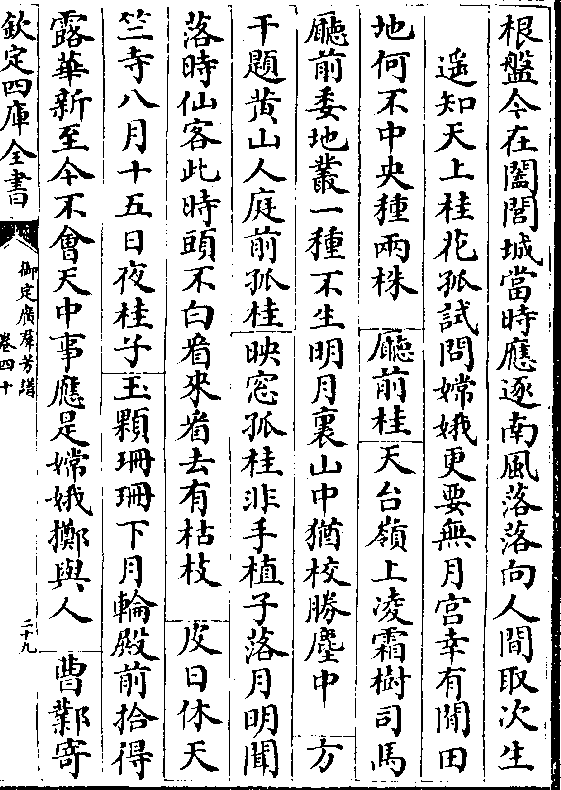 根盤今在闔閭城當時應逐南風落落向人間取次生
遥知天上桂花孤試問嫦娥更要無月宫幸有閒田
地何不中央種兩株 廳前桂 天台嶺上凌霜樹司馬
廳前委地叢一種不生明月裏山中猶校勝塵中 方
干題黄山人庭前孤桂 映窓孤桂非手植子落月明聞
落時仙客此時頭不白看來看去有枯枝 皮日休天
竺寺八月十五日夜桂子 玉顆珊珊下月輪殿前拾得
露華新至今不會天中事應是嫦娥擲與人 曹鄴寄
欽定四庫全書
御定廣羣芳譜
卷四十
二十九